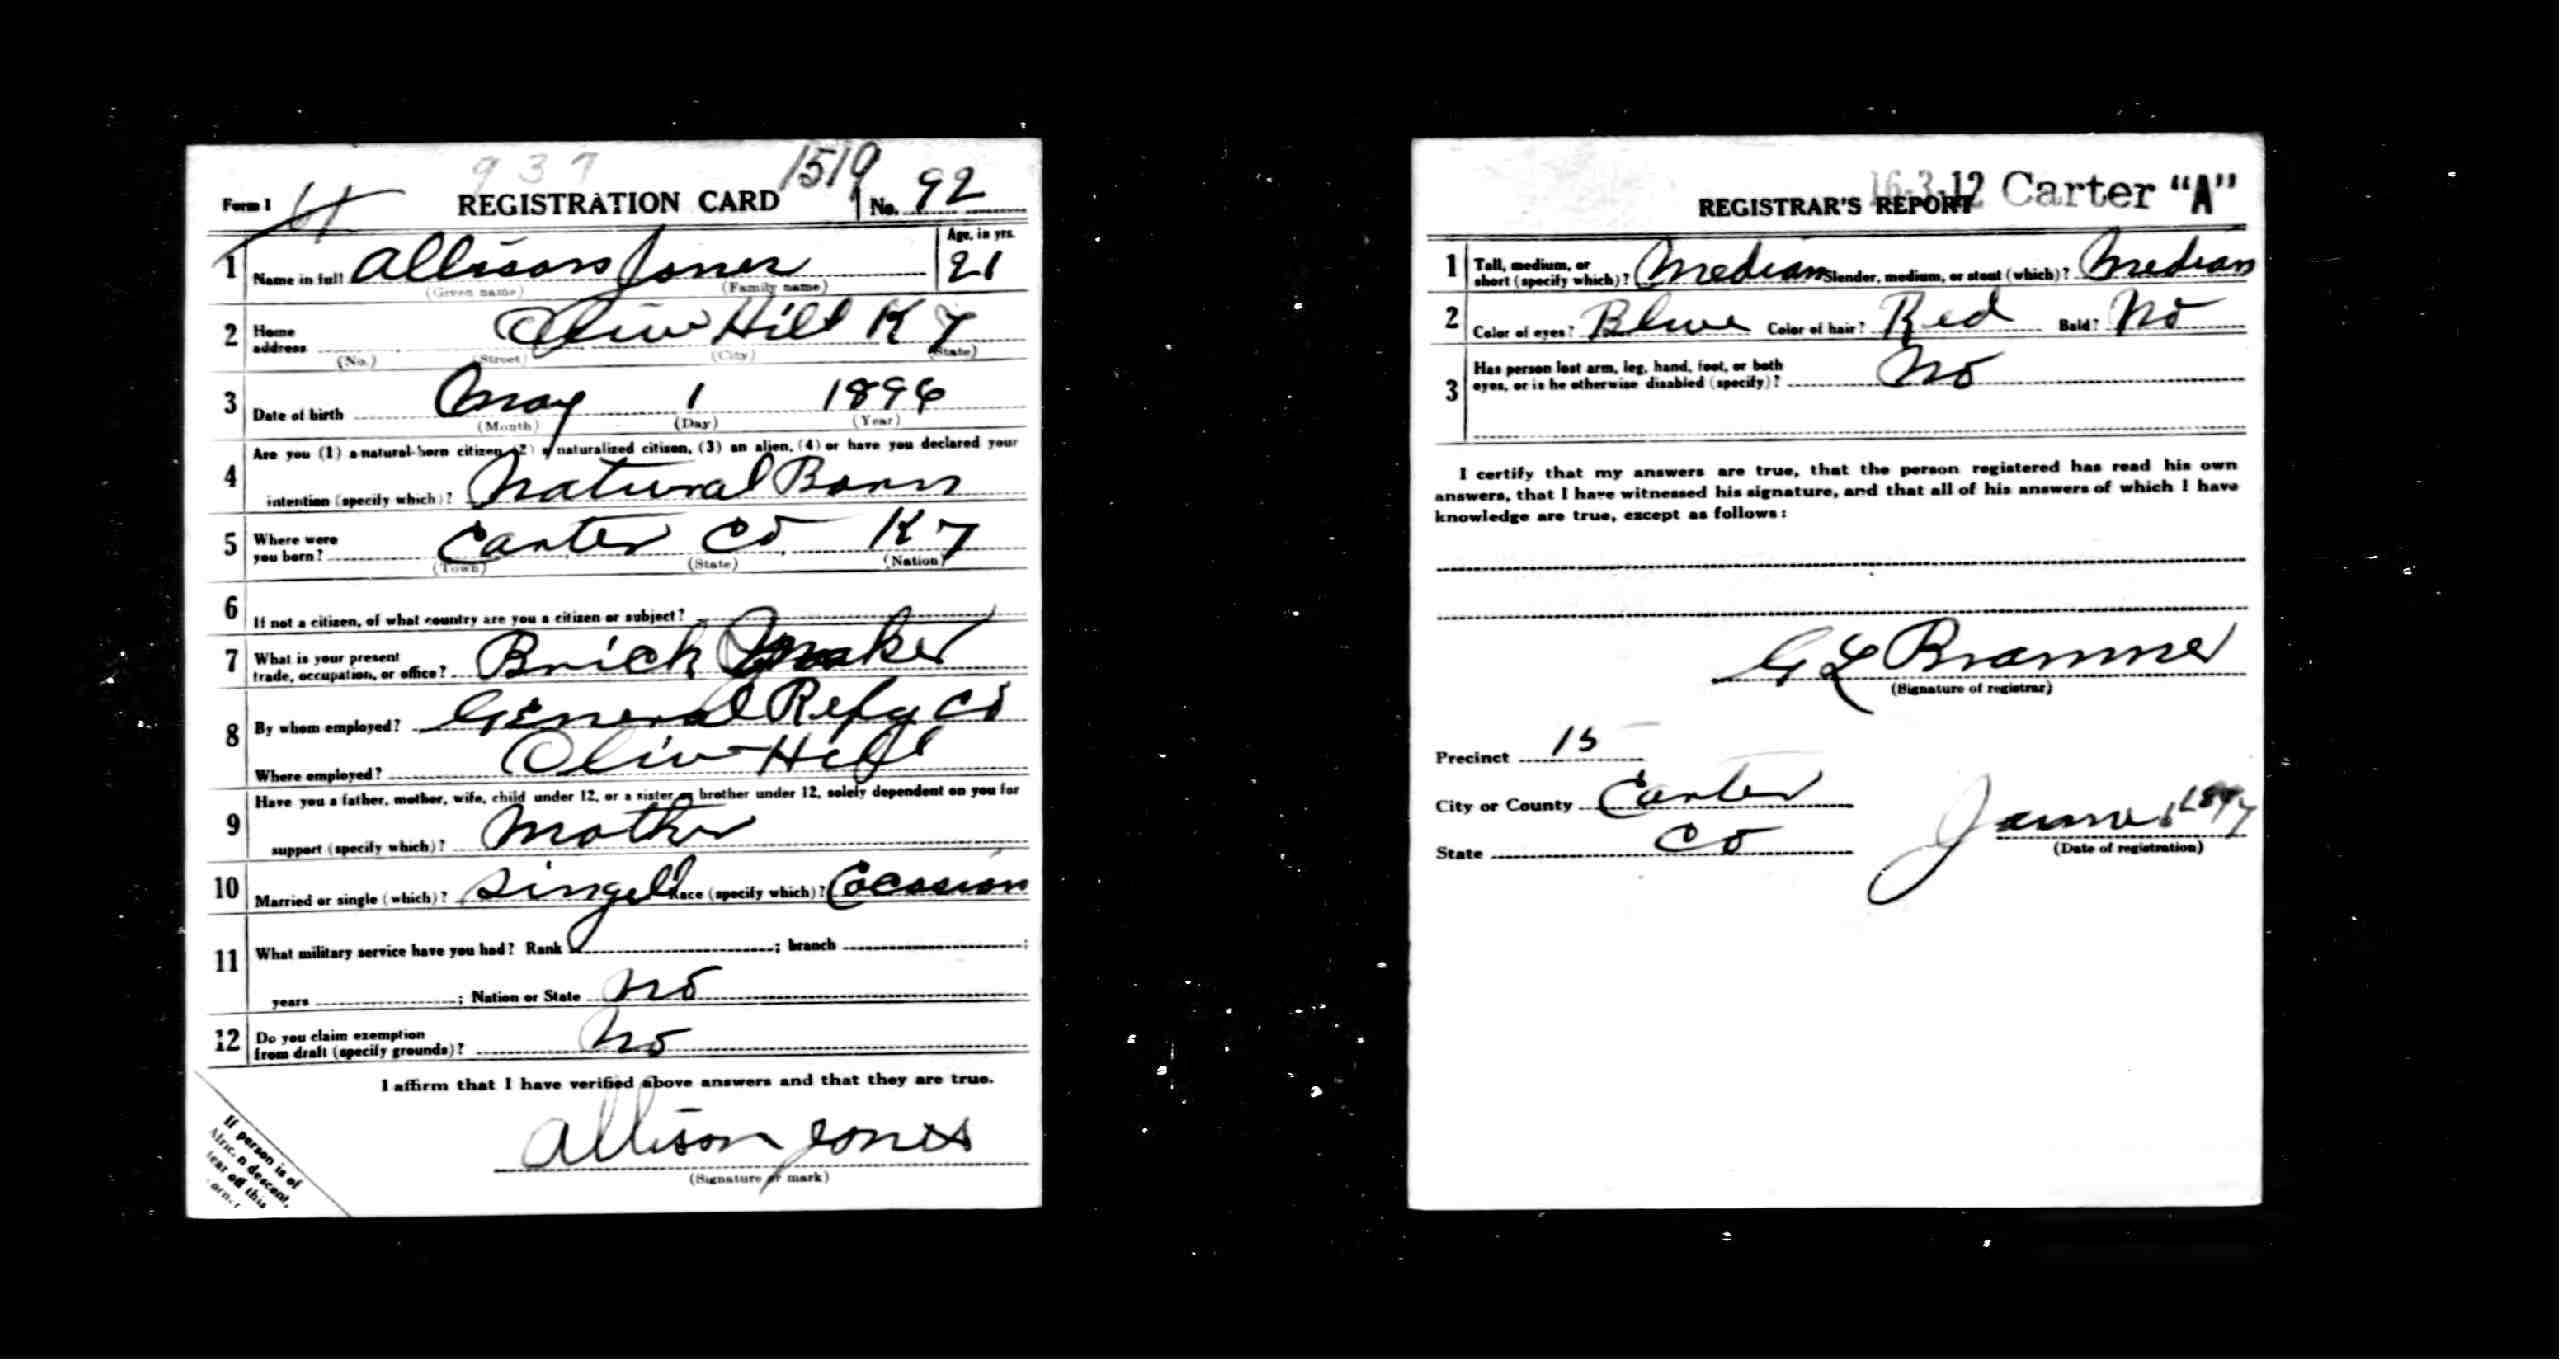 937
1519
Form 1 REGISTRATION CARD No. 92
1 Name in full Allison Jones Age, in yrs. 21
(Given name) (Family name)
2 Home address Oliv Hill Ky
(No.) (Street) (City) (State)
3 Date of birth May 1 1896
(Month) (Day) (Year)
4 Are you (1) a natural-born citizen, (2) a naturalized citizen, (3) an alien, (4) or have you declared your
intention (specify which)? Natural Born
5 Where were you born? Carter Co Ky
(Town) (State) (Nation)
6 If not a citizen, of what country are you a citizen or subject?
7 What is your present trade, occupation, or office? Brick Maker
8 By whom employed? General Refy Co
Where employed? Oliv Hill
9 Have you a father, mother, wife, child under 12, or a sister or brother under 12, solely dependent on you for
support (specify which)? Mother
10 Married or single (which)? Singell Race (specify which)? Cocasion
11 What military service have you had? Rank ; branch ;
years ; Nation or State No
12 Do you claim exemption from draft (specify grounds)? No
I affirm that I have verified above answers and that they are true.
Allison Jones
(Signature or mark)
If person is of
African descent,
tear off this
corner
REGISTRAR'S REPORT 16-3-12 Carter "A"
1 Tall, medium, or short (specify which)? Median Slender, medium, or stout (which)? Median
2 Color of eyes? Blue Color of hair? Red Bald? No
3 Has person lost arm, leg, hand, foot, or both
eyes, or is he otherwise disabled (specify)? No
I certify that my answers are true, that the person registered has read his own
answers, that I have witnessed his signature, and that all of his answers of which I have
knowledge are true, except as follows:
G L Brammer
(Signature of registrar)
Precinct 15
City or County Carter
State Co
(Date of registration)